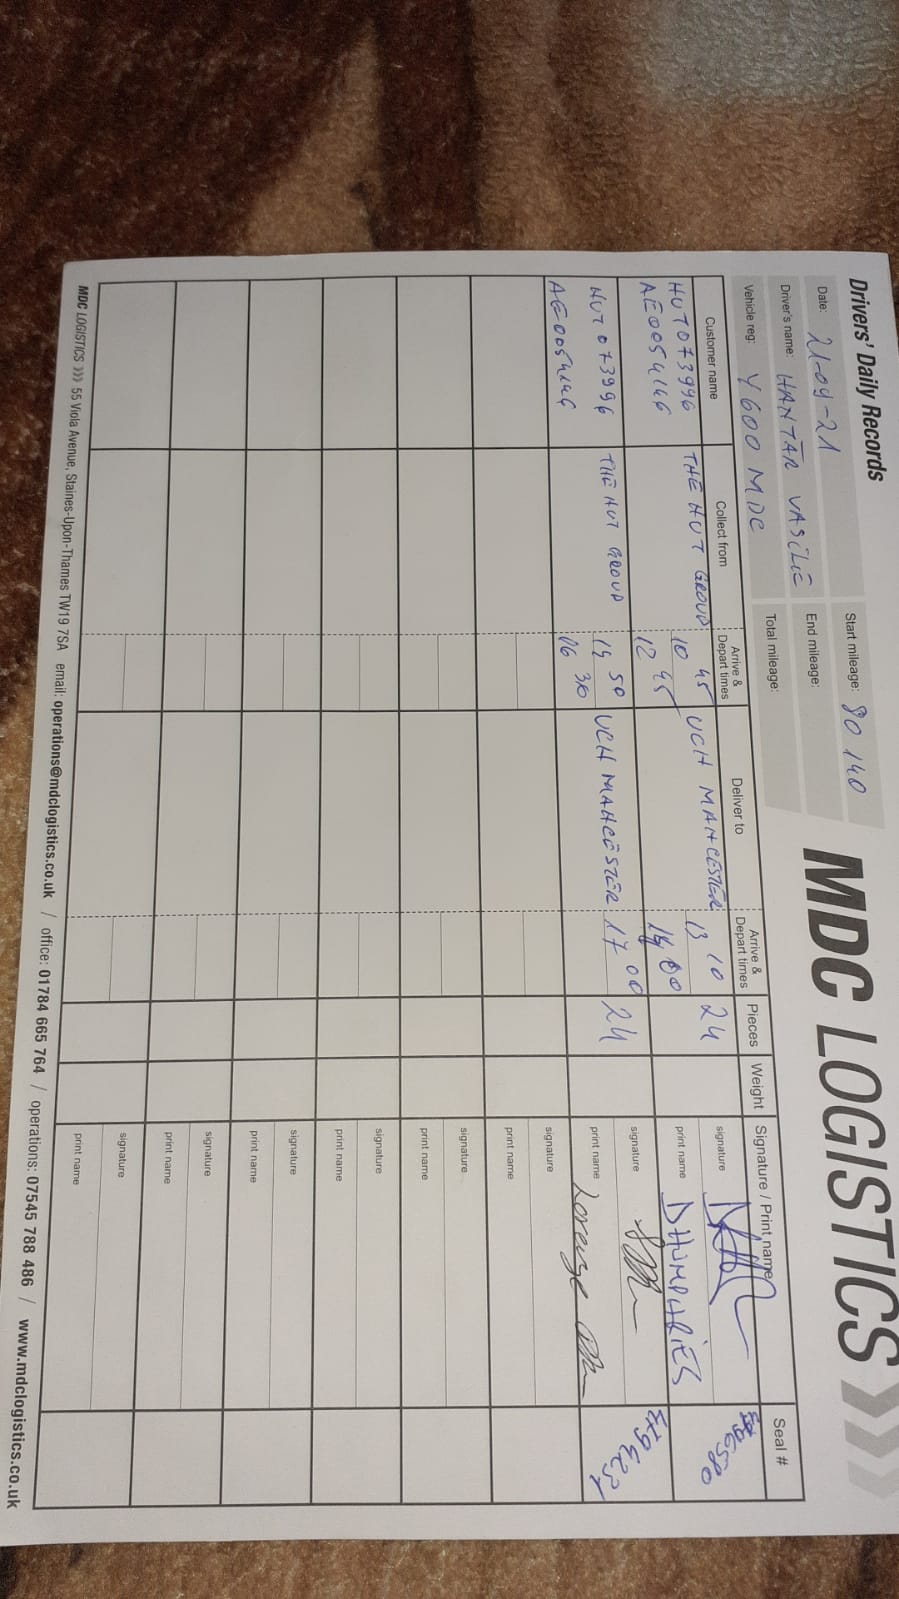 Drivers' Daily Records
MDC LOGISTICS
Date: 21-09-21
Start mileage: 80 140
Driver's name: HANTĂR VASILE
End mileage:
Vehicle reg: Y600 MDC
Total mileage:
Customer name Collect from Arrive & Depart times Deliver to Arrive & Depart times Pieces Weight Signature / Print name Seal #
HUT073996 THE HUT GROUP 10 45 UCH MANCESTER 13 10 24 signature
AE0054146 12 45 print name DHUMPHRIES
HUT073996 THE HUT GROUP 14 50 UCH MANCESTER 17 00 24 signature
AE0054146 06 30 print name
signature
print name
signature
print name
signature
print name
signature
print name
signature
print name
signature
print name
MDC LOGISTICS 55 Viola Avenue, Staines-Upon-Thames TW19 7SA email: operations@mdclogistics.co.uk / office: 01784 665 764 / operations: 07545 788 486 / www.mdclogistics.co.uk